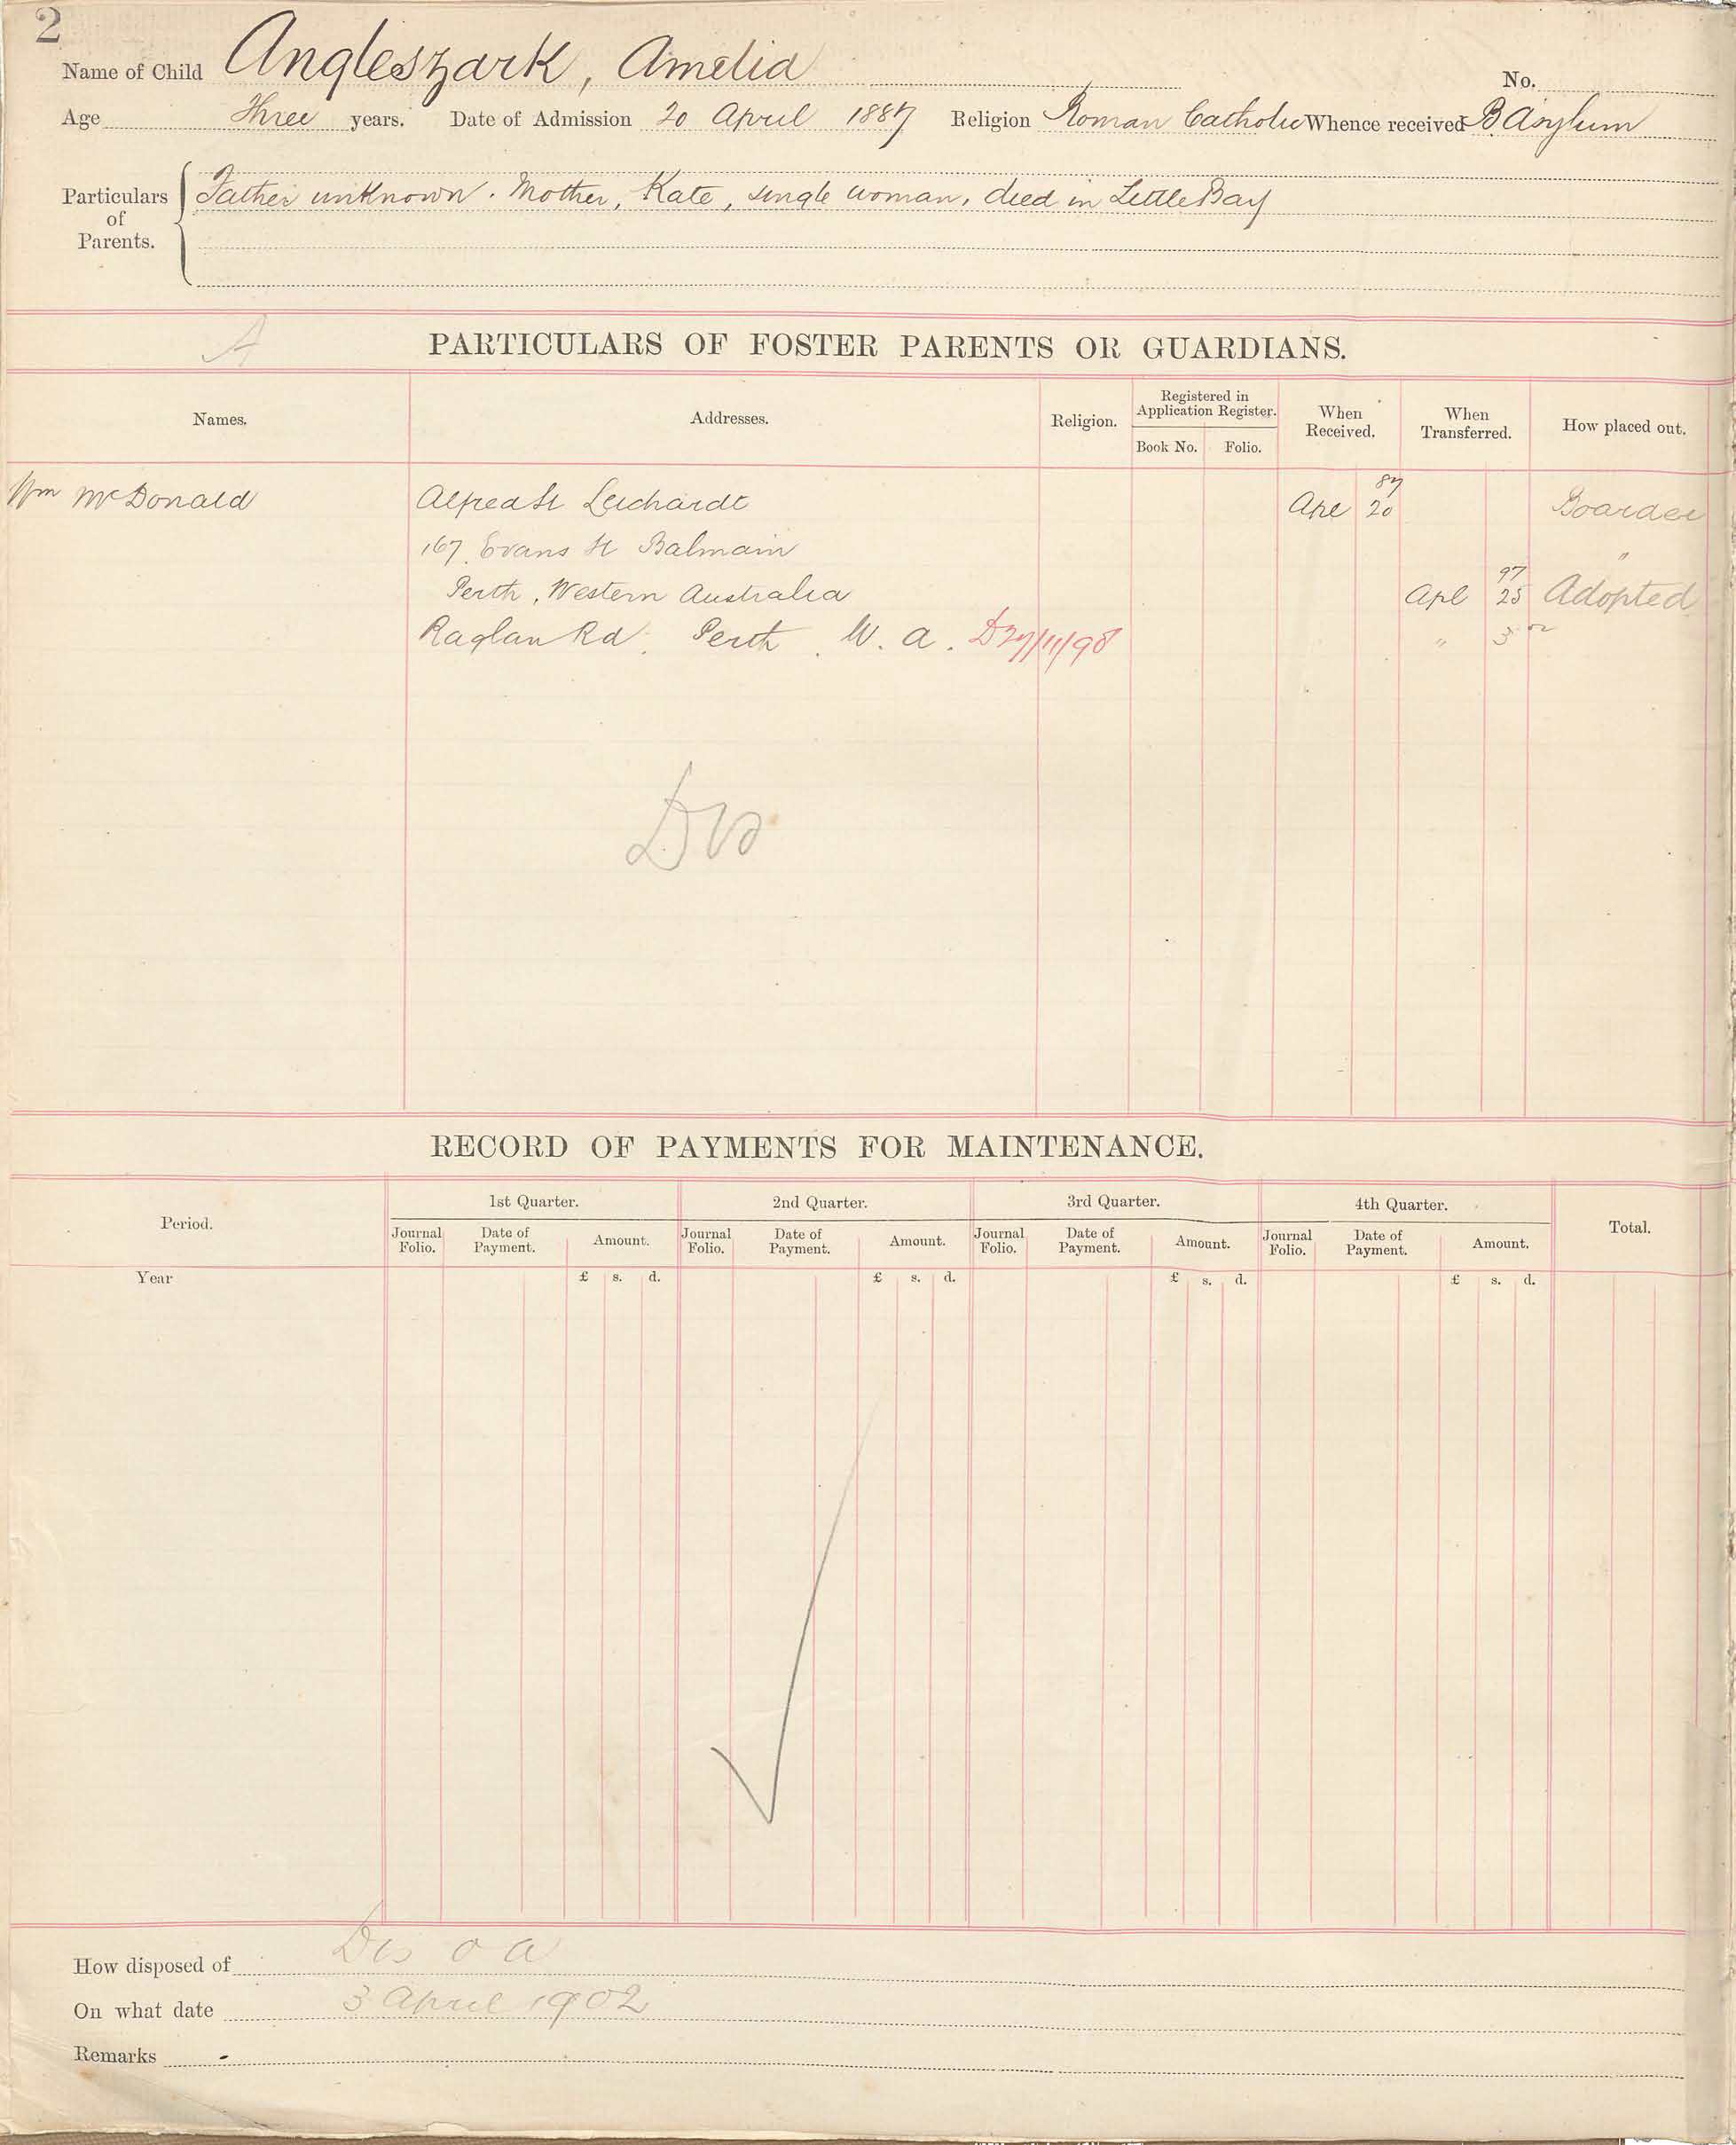 2
Name of Child Angleszark, Amelia No.
Age Three years. Date of Admission 20 April 1887 Religion Roman Catholic Whence received B. Asylum
Particulars of Parents. Father unknown. Mother, Kate, single woman, died in Little Bay
A
PARTICULARS OF FOSTER PARENTS OR GUARDIANS.
Names. Addresses. Religion. Registered in Application Register. Book No. Folio. When Received. When Transferred. How placed out.
Wm McDonald Alfred St Leichardt Apl 87 20 Boarder
167 Evans St Balmain "
Perth, Western Australia Apl 97 25 Adopted
Raglan Rd. Perth. W. A. D 27/11/98 " 3 02
RECORD OF PAYMENTS FOR MAINTENANCE.
Period. 1st Quarter. 2nd Quarter. 3rd Quarter. 4th Quarter. Total.
Journal Folio. Date of Payment. Amount. Journal Folio. Date of Payment. Amount. Journal Folio. Date of Payment. Amount. Journal Folio. Date of Payment. Amount.
Year £ s. d. £ s. d. £ s. d. £ s. d.
How disposed of Dis o a
On what date 3 April 1902
Remarks -